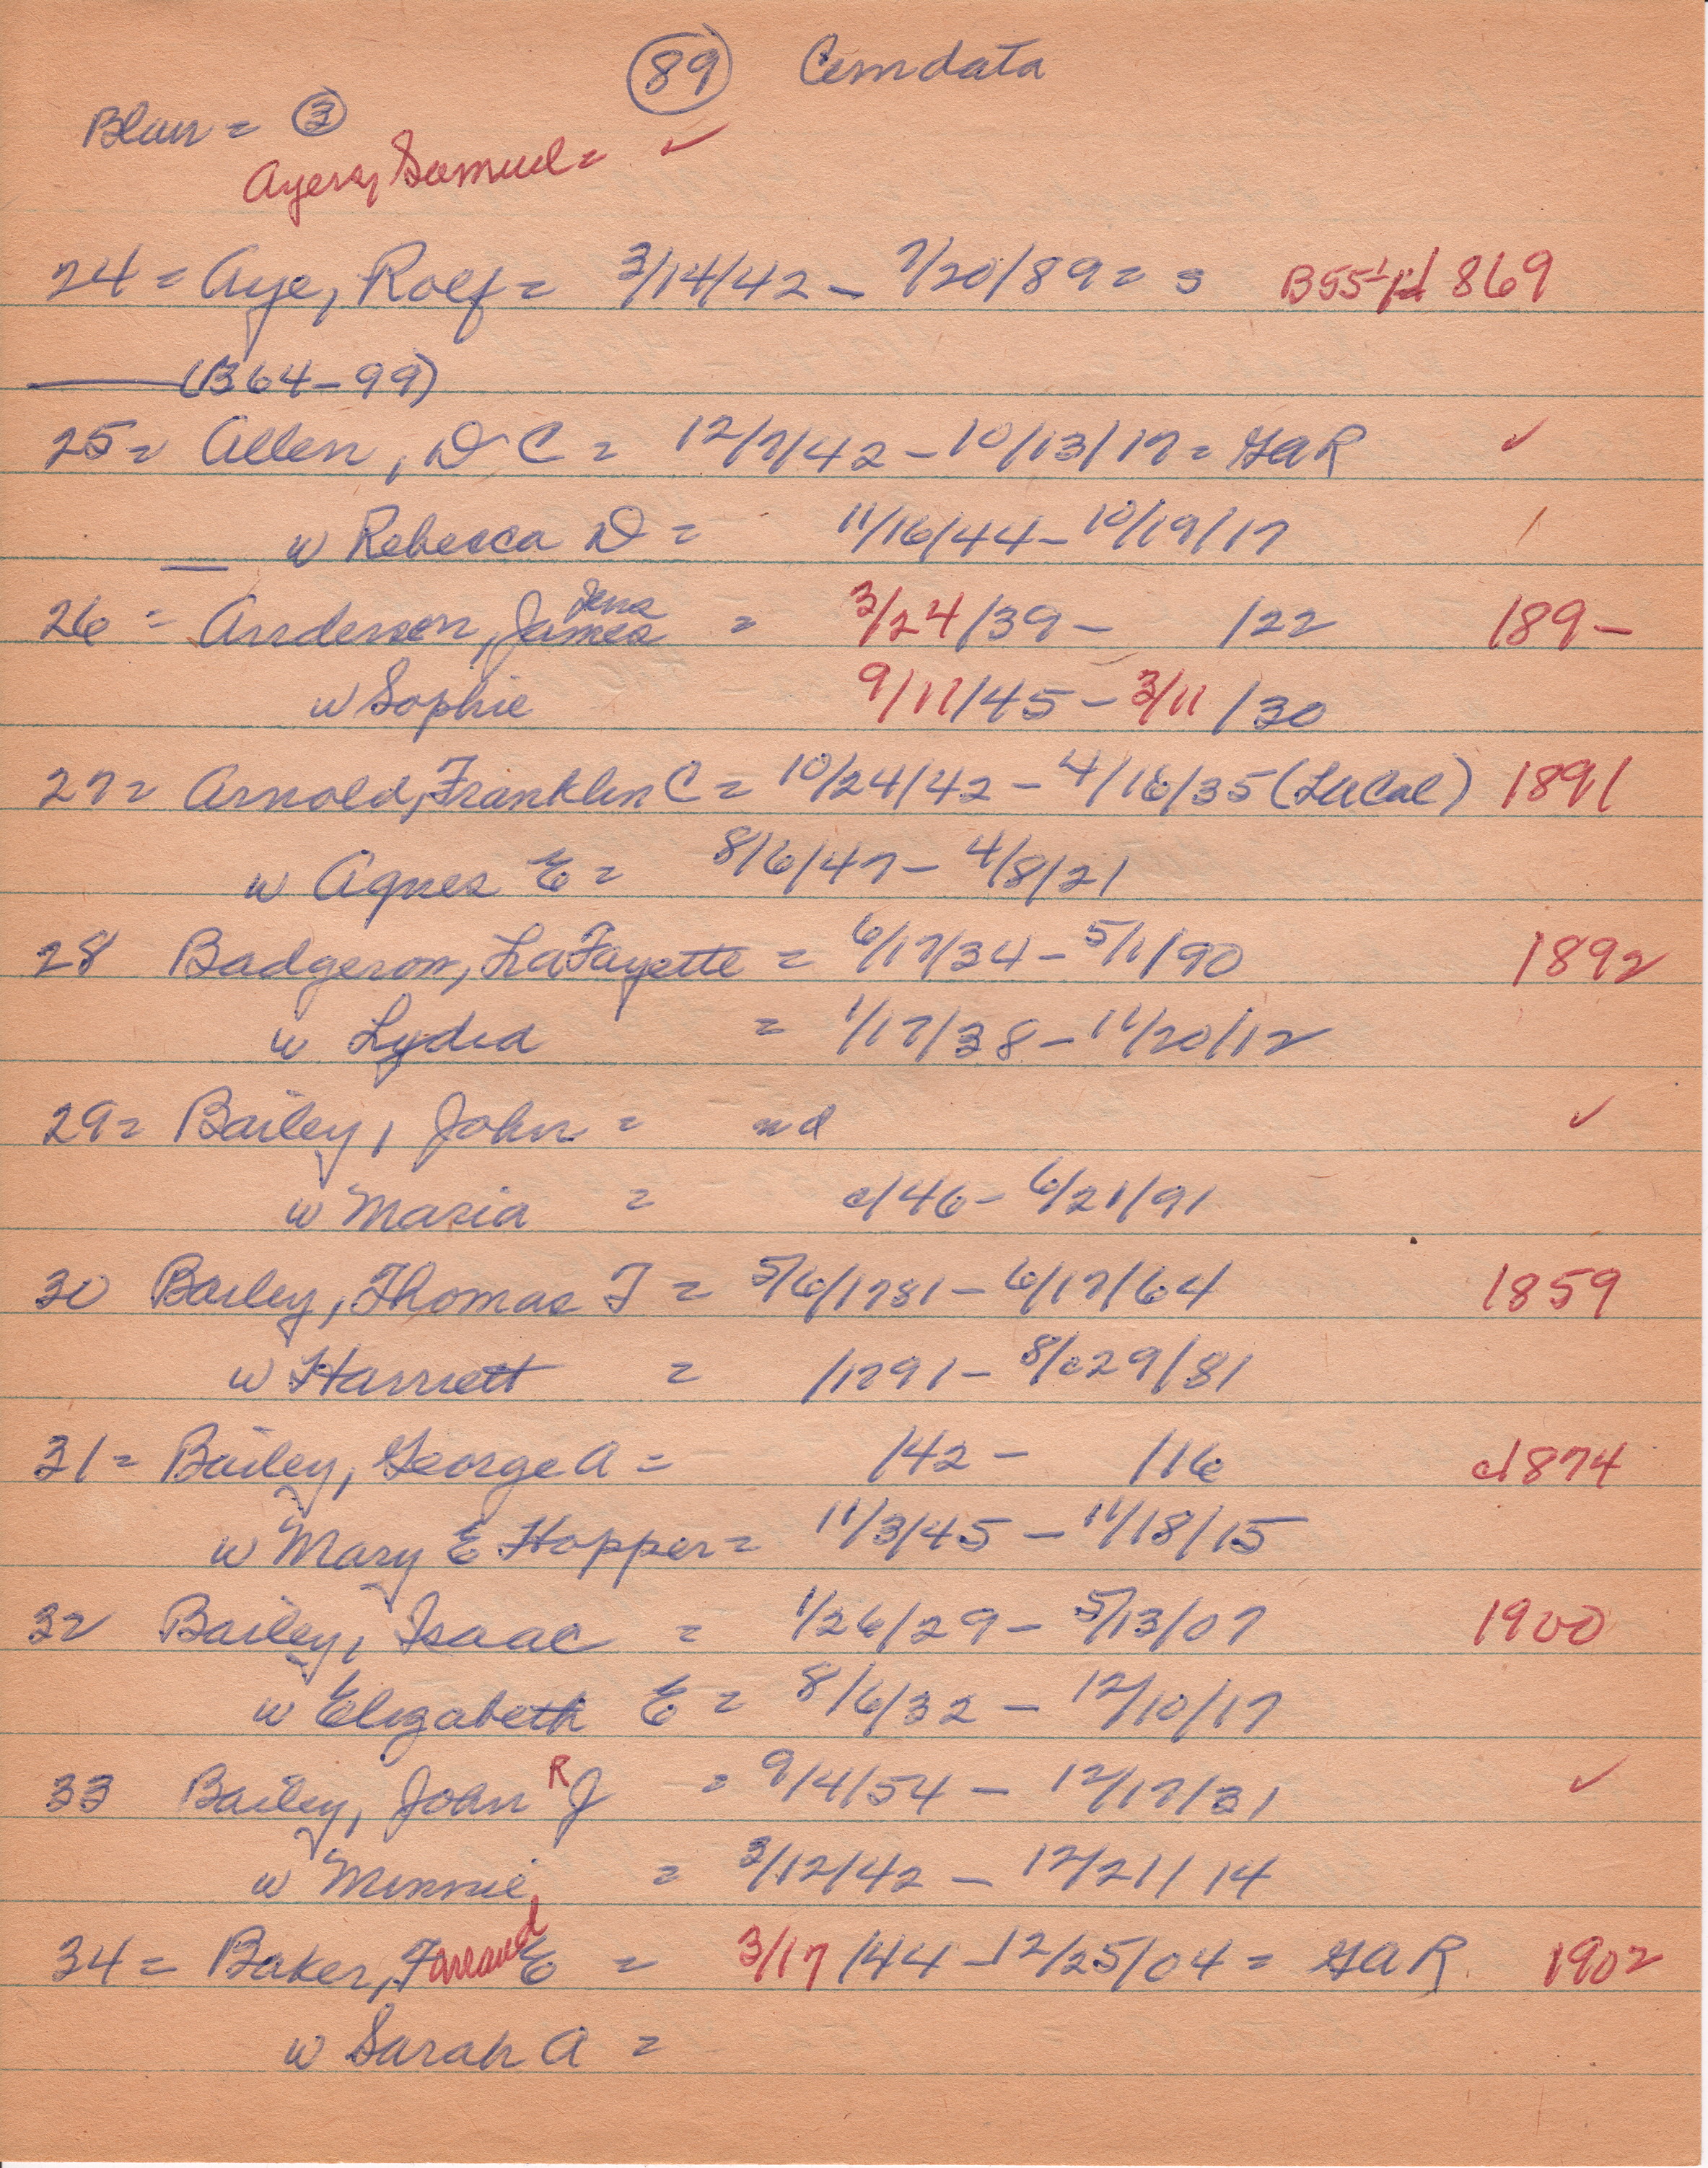 89 Cemdata
Blair = 3
Ayers, Samuel = ✓
24 = Aye, Rolf = 3/14/42 - 7/20/89 = s 1869
(B64-99)
25 = Allen, D C = 12/7/42 - 10/13/17 = GAR ✓
w Rebecca D = 11/16/44 - 10/19/17 /
26 = Anderson, James Jens = 3/24/39 - /22 189-
w Sophie 9/11/45 - 3/11/30
27 = Arnold, Franklin C = 10/24/42 - 4/16/35 (LACal) 1891
w Agnes E = 8/6/47 - 4/8/21
28 Badgerow, LaFayette = 6/17/34 - 5/1/90 1892
w Lydia = 1/17/38 - 11/20/12
29 = Bailey, John = nd ✓
w Maria = c/46 - 6/21/91
30 Bailey, Thomas T = 5/6/1781 - 6/17/64 1859
w Harriett = /1791 - 8/c29/81
31 = Bailey, George A = /42 - /16 c1874
w Mary E Hopper = 11/3/45 - 11/18/15
32 Bailey, Isaac = 1/26/29 - 5/13/07 1900
w Elizabeth E = 8/6/32 - 12/10/17
33 Bailey, John R J = 9/4/54 - 12/17/31 ✓
w Minnie = 3/12/42 - 12/21/14
34 = Baker, Farrand E = 3/17/44 - 12/25/04 = GAR 1902
w Sarah A =